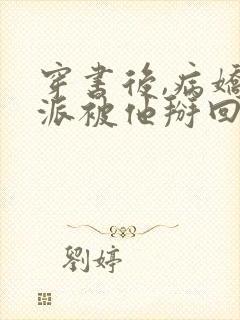 穿書後,病嬌
派被他掰回
劉婷